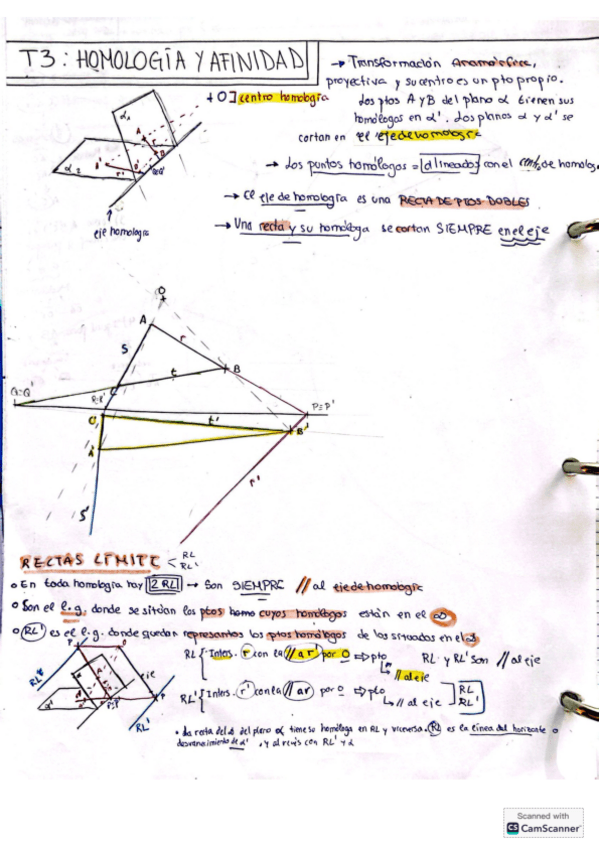 T3: HOMOLOGÍA Y AFINIDAD
→ Transformación Anamórfica,
proyectiva y su centro es un pto propio.
+ O] centro homología
Los ptos A y B del plano α tienen sus
homólogos en α'. Los planos α y α' se
cortan en el eje de homología
α1
A
B
α2
A'
B'
r'
→ Los puntos homólogos = alineados con el centro de homolog.
→ el eje de homología es una RECTA DE PTOS DOBLES
eje homología
→ Una recta y su homóloga se cortan SIEMPRE en el eje
O
A
r
S
t
B
C
Q=Q'
R=R'
P=P'
C'
t'
B'
A'
r'
S'
RECTAS LÍMITE < RL
RL'
o En toda homología hay 2 RL → Son SIEMPRE // al eje de homología
o Son el l.g. donde se sitúan los ptos homo cuyos homólogos están en el ∞
o RL' es el l.g. donde quedan represantos los ptos homólogos de los situados en el ∞
RL { Inters. r con la // a r' por O ⇒ pto
↳ // al eje
RL y RL' son // al eje
RL' { Inters. r' con la // a r por O ⇒ pto
↳ // al eje
RL
RL'
RL'
eje
α'
RL'
• La recta del ∞ del plano α tiene su homóloga en RL y viceversa. RL es la línea del horizonte o
desvanecimiento de α', y al revés con RL' y α
Scanned with
CS CamScanner